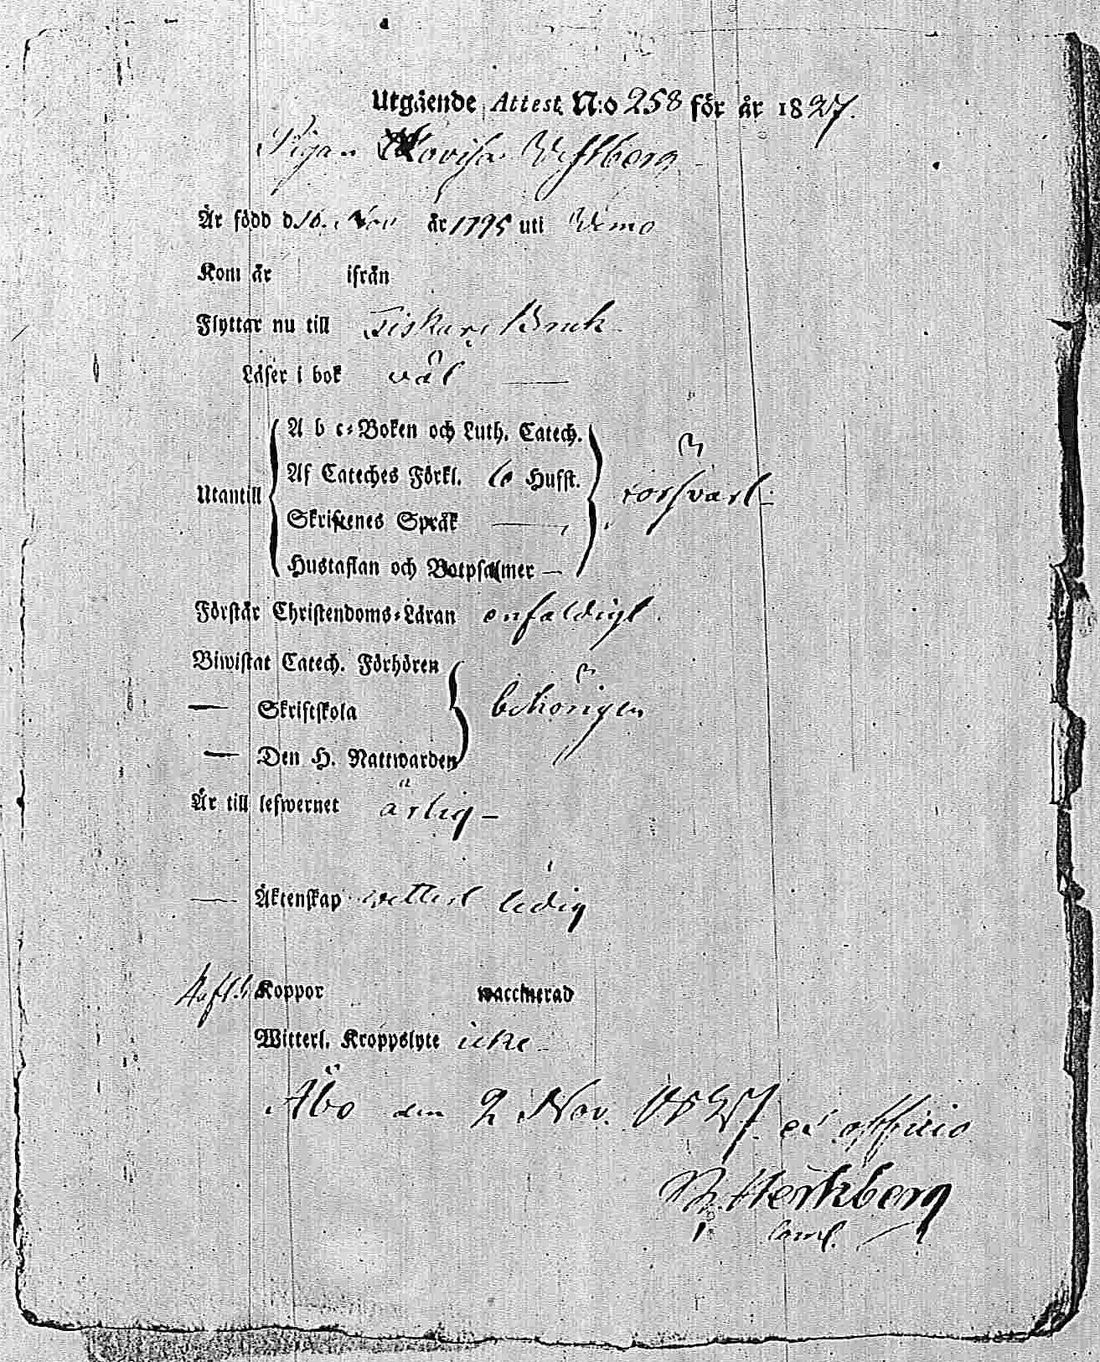 Utgående Attest N:o 258 för år 1827.
Pigan Lovisa Westberg
Är född d. 16. Nov år 1795 uti Wemo
Kom år ifrån
Flyttar nu till Fiskars Bruk
Läser i bok väl —
Utantill
A b c-Boken och Luth. Catech.
Af Cateches Förkl. 6 Hufst.
Skriftenes Språk —
Hustaflan och Botpsalmer —
försvarl.
Förstår Christendoms-Läran enfaldigt.
Biwistat Catech. Förhören
— Skriftskola
— Den H. Nattwarden
behörigen
Är till lefwernet ärlig —
— Äktenskap witterl ledig
Haft Koppor waccinerad
Witterl. Kroppslyte icke
Åbo den 2 Nov. 1827 ex officio